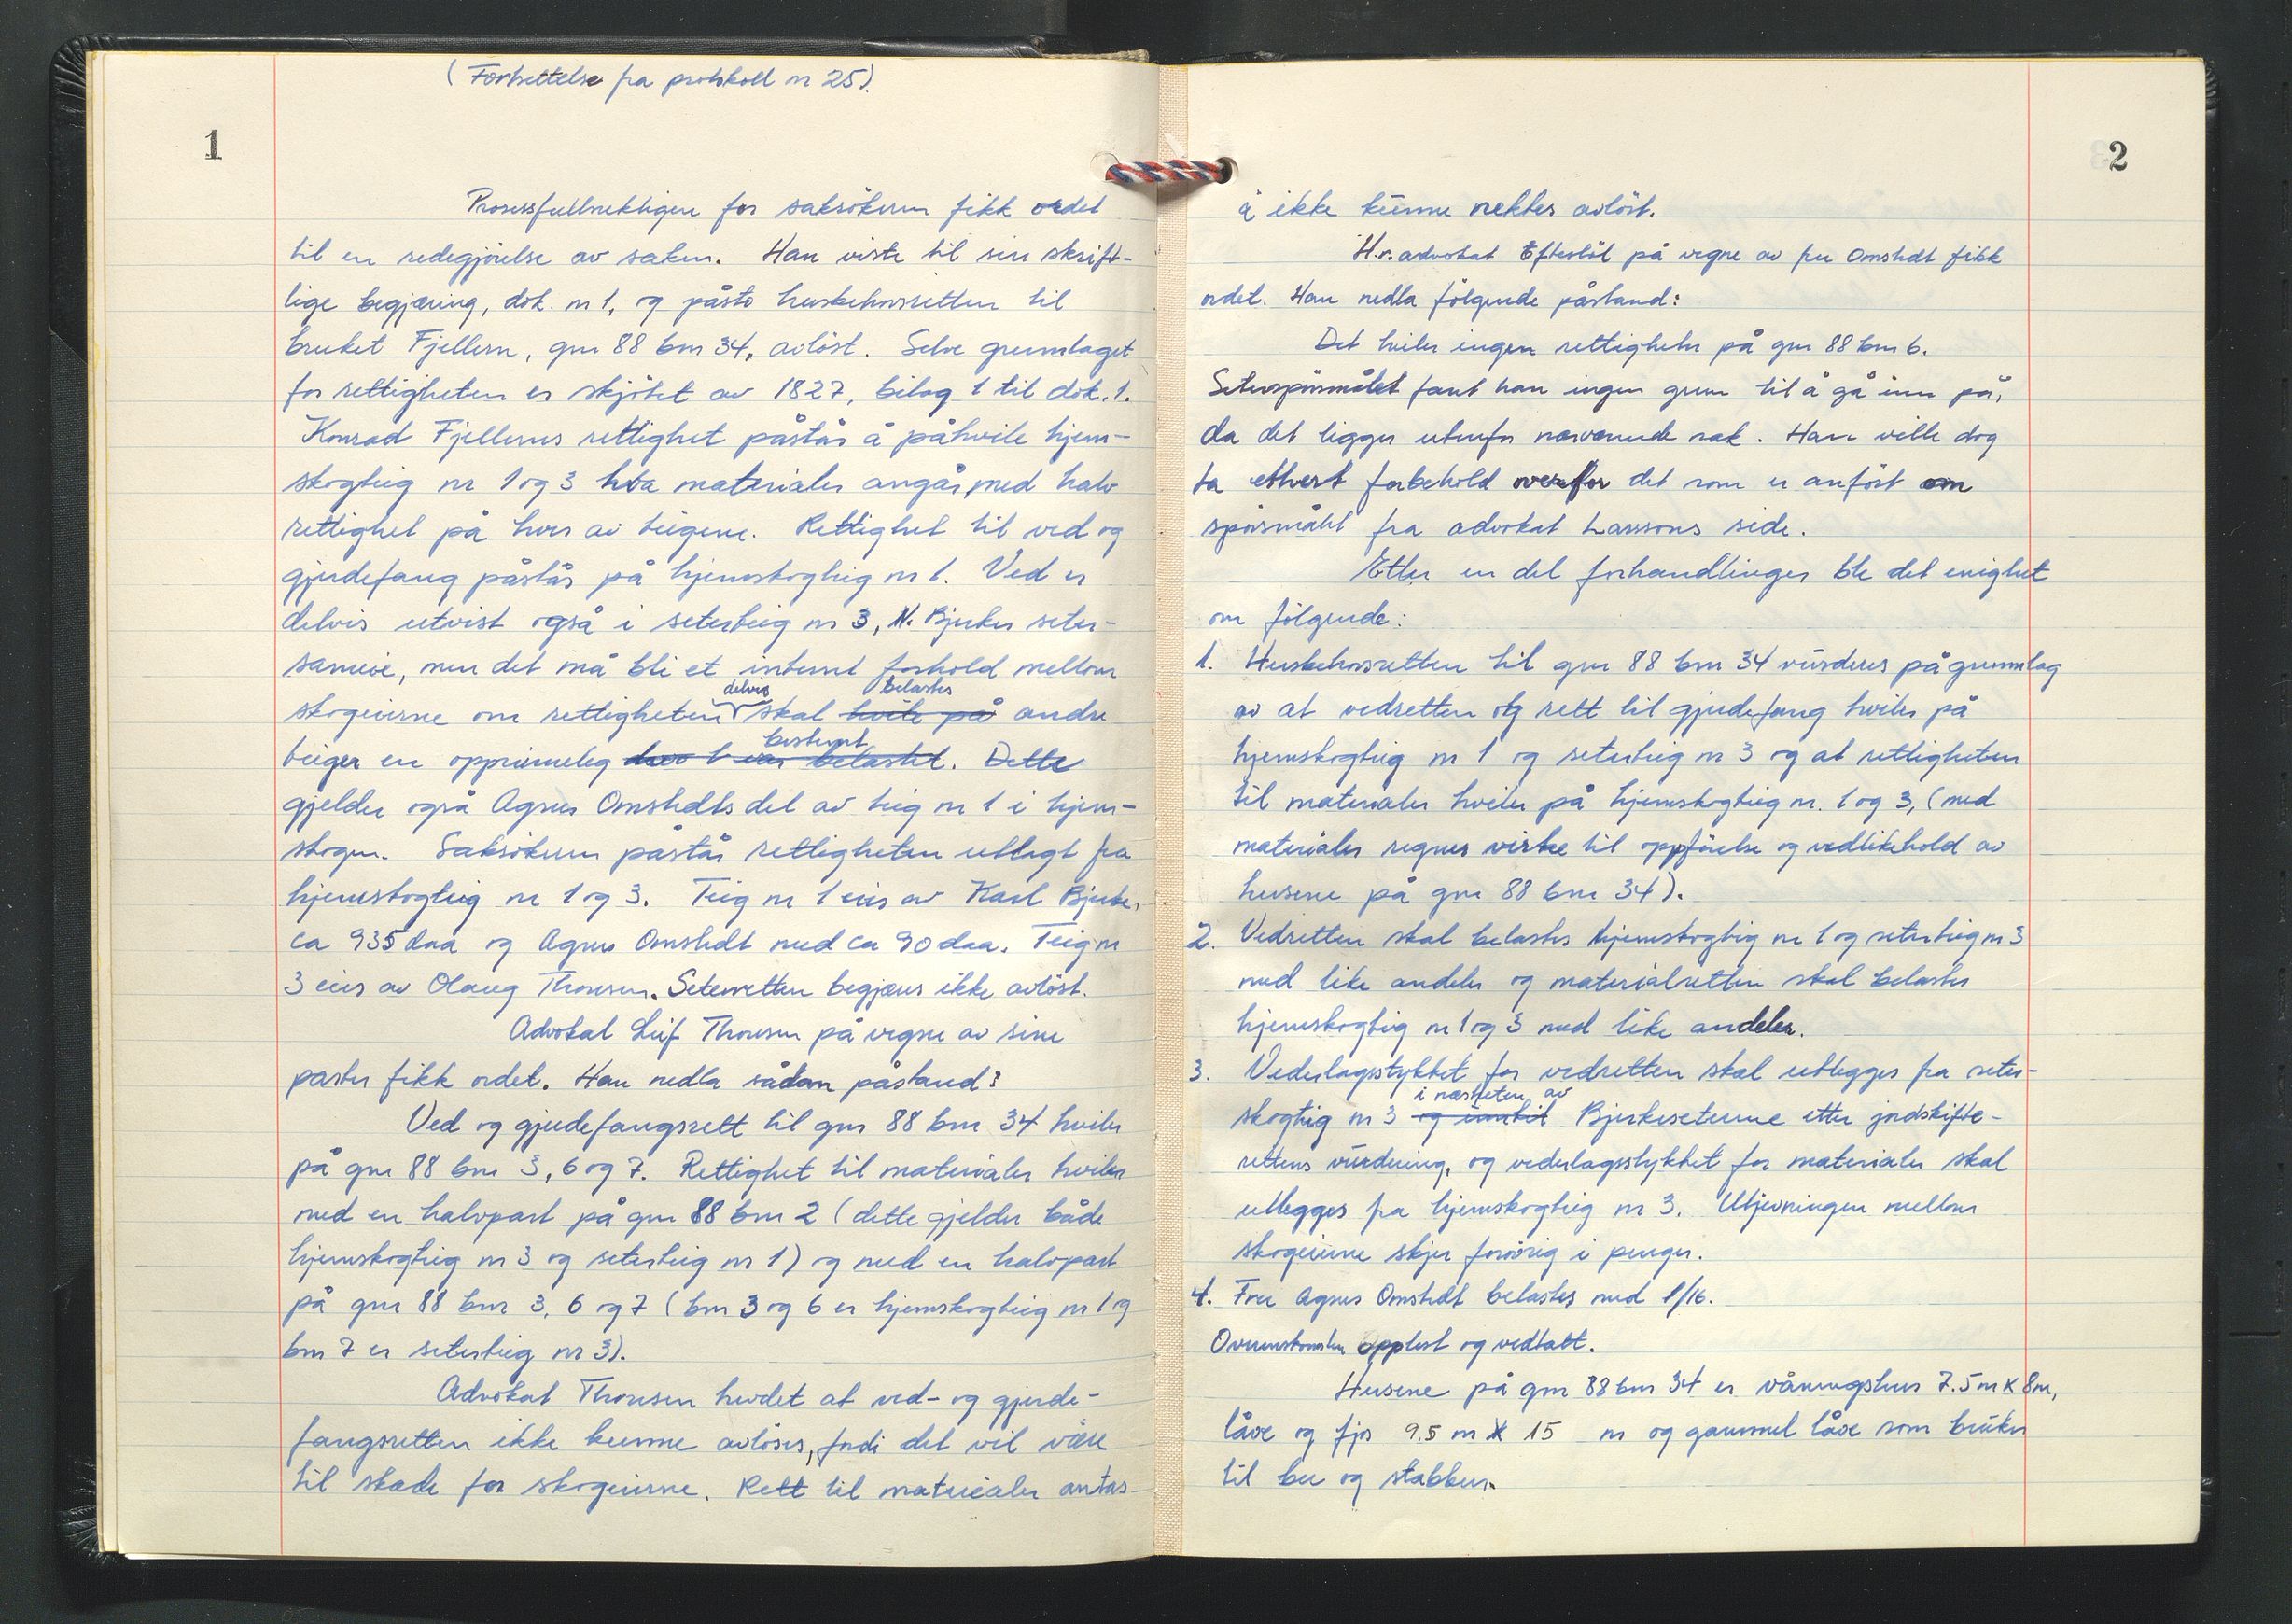 (Fortsettelse fra protokoll nr 25).
1
Prosessfullmektigen for saksökeren fikk ordet
til en redegjörelse av saken. Han viste til sin skrift-
lige begjæring, dok. nr 1, og påsto husbehovsretten til
bruket Fjellern, gnr 88 bnr 34, avlöst. Selve grunnlaget
for rettigheten er skjötet av 1827, bilag 1 til dok. 1.
Konrad Fjellerns rettighet påstås å påhvile hjem-
skogteig nr 1 og 3 hva materialer angår, med halv
rettighet på hver av teigene. Rettighet til ved og
gjerdefang påstås på hjemskogteig nr 1. Ved er
delvis utvist også i seterteig nr 3, N. Bjerker seter-
sameie, men det må bli et internt forhold mellom
skogeierne om rettigheten delvis skal hvile på belastes andre
teiger enn opprinnelig bestemt. Dette
gjelder også Agnes Omstedts del av teig nr 1 i hjem-
skogen. Saksökeren påstår rettigheten utlagt fra
hjemskogteig nr 1 og 3. Teig nr 1 eies av Karl Bjerke,
ca 935 daa og Agnes Omstedt med ca 90 daa. Teig nr
3 eies av Olaug Thoresen. Seterretten begjæres ikke avlöst.
Advokat Leif Thoresen på vegne av sine
parter fikk ordet. Han nedla sådan påstand:
Ved og gjerdefangsrett til gnr 88 bnr 34 hviler
på gnr 88 bnr 3, 6 og 7. Rettighet til materialer hviler
med en halvpart på gnr 88 bnr 2 (dette gjelder både
hjemskogteig nr 3 og seterteig nr 1) og med en halvpart
på gnr 88 bnr 3, 6 og 7 (bnr 3 og 6 er hjemskogteig nr 1 og
bnr 7 er seterteig nr 3).
Advokat Thoresen hevdet at ved- og gjerde-
fangsretten ikke kunne avlöses, fordi det vil være
til skade for skogeierne. Rett til materialer antas
2
å ikke kunne nektes avlöst.
H.r.advokat Eftestöl på vegne av fru Omstedt fikk
ordet. Han nedla fölgende påstand:
Det hviler ingen rettigheter på gnr 88 bnr 6.
Seterspörsmålet fant han ingen grunn til å gå inn på,
da det ligger utenfor nærværende sak. Han ville dog
ta ethvert forbehold overfor det som er anfört om
spörsmålet fra advokat Larssons side.
Etter en del forhandlinger ble det enighet
om fölgende:
1. Husbehovsretten til gnr 88 bnr 34 vurderes på grunnlag
av at vedretten og rett til gjerdefang hviler på
hjemskogteig nr 1 og seterteig nr 3 og at rettigheten
til materialer hviler på hjemskogteig nr. 1 og 3, (med
materialer regnes virke til oppförelse og vedlikehold av
husene på gnr 88 bnr 34).
2. Vedretten skal belastes hjemskogteig nr 1 og seterteig nr 3
med like andeler og materialretten skal belastes
hjemskogteig nr 1 og 3 med like andeler.
3. Vederlagsstykket for vedretten skal utlegges fra seter-
skogteig nr 3 i nærheten av Bjerkeseterne etter jordskifte-
rettens vurdering, og vederlagsstykket for materialer skal
utlegges fra hjemskogteig nr 3. Utjevningen mellom
skogeierne skjer forövrig i penger.
4. Fru Agnes Omstedt belastes med 1/16.
Overenskomsten opplest og vedtatt.
Husene på gnr 88 bnr 34 er våningshus 7.5 m x 8 m,
låve og fjøs 9.5 m x 15 m og gammel låve som brukes
til bu og stabbur.